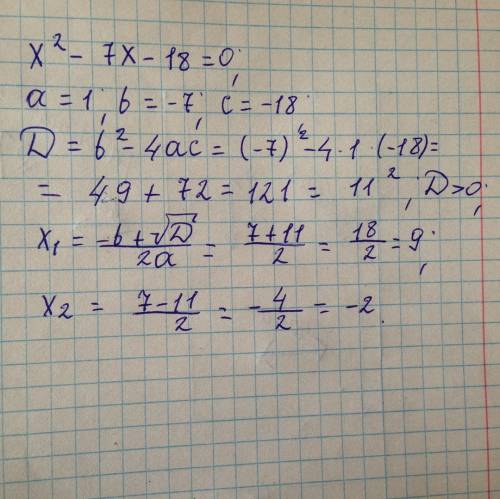 x² - 7x - 18 = 0;
a = 1; b = -7; c = -18.
D = b² - 4ac = (-7)² - 4·1·(-18) =
= 49 + 72 = 121 = 11²; D>0;
x₁ = (-b + √D)/2a = (7+11)/2 = 18/2 = 9;
x₂ = (7-11)/2 = -4/2 = -2.